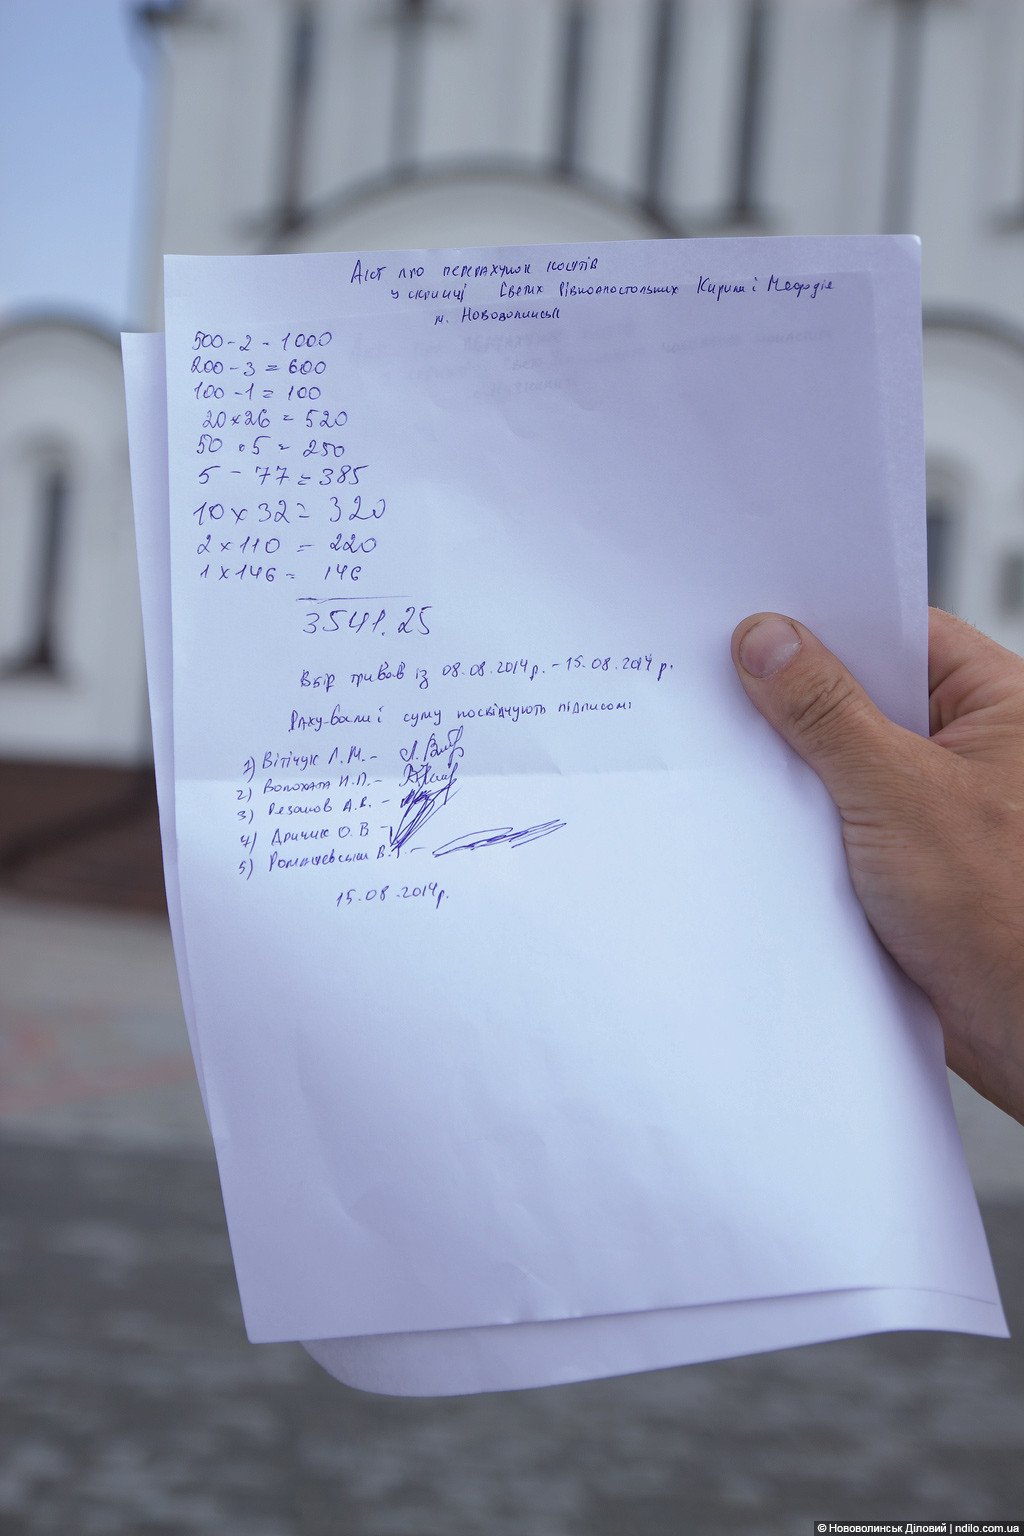 Акт про перерахунок коштів
у скринці Святих Рівноапостольних Кирила і Мефодія
м. Нововолинськ
500 - 2 = 1000
200 - 3 = 600
100 - 1 = 100
20 x 26 = 520
50 · 5 = 250
5 - 77 = 385
10 x 32 = 320
2 x 110 = 220
1 x 146 = 146
3541.25
Збір тривав із 08.08.2014р. - 15.08.2014р.
Рахували і суму посвідчують підписомі
1) Вітічук Л.М. -
2) Волохата Н.П. -
3) Рєзанов А.В. -
4) Дричик О.В -
5) Ромашевський В. -
15.08.2014р.
© Нововолинськ Діловий | ndilo.com.ua